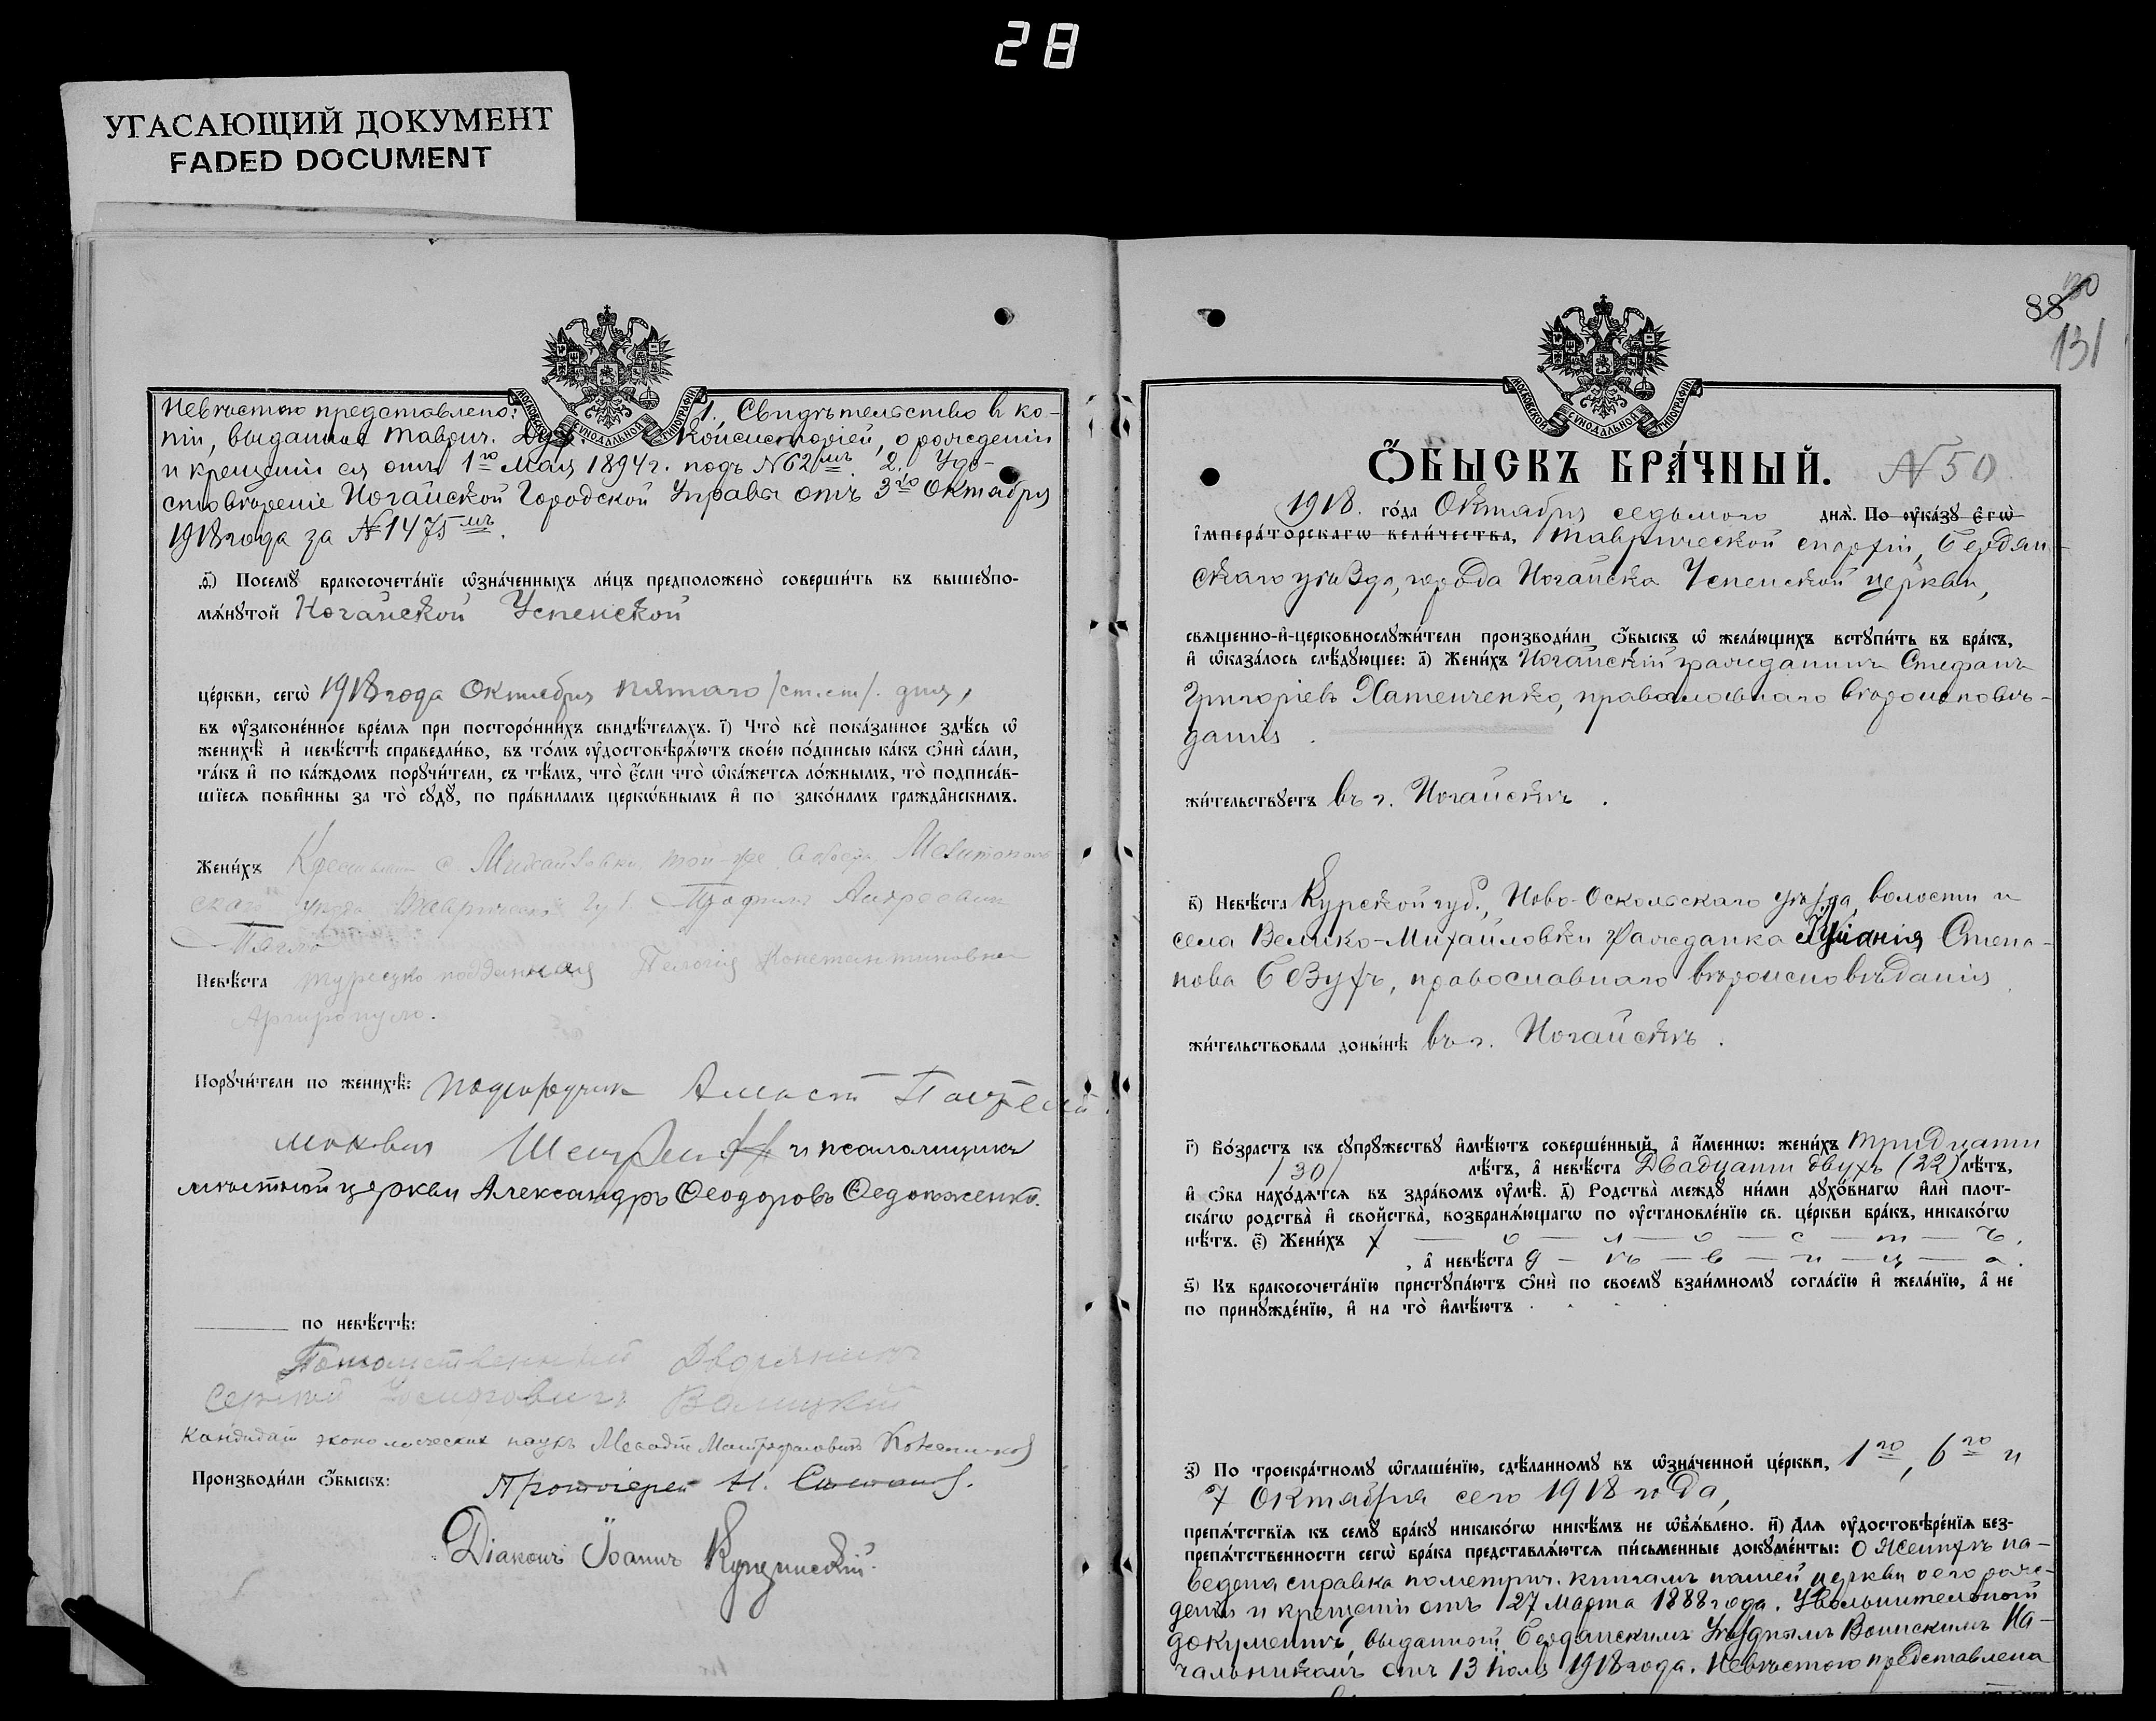 28
УГАСАЮЩИЙ ДОКУМЕНТ
FADED DOCUMENT
МОСКОВСКОЙ СѴНОДАЛЬНОЙ ТИПОГРАФІИ
Невѣстою представлено: 1. Свидѣтельство въ ко-
піи, выданное Таврич. Дух. Консисторіей, о рожденіи
и крещеніи ея отъ 1го Мая 1894 г. подъ № 62мъ. 2. Удо-
стовѣреніе Ногайской Городской Управы отъ 3го Октября
1918 года за № 1475мъ.
д҃і) Посемꙋ̀ бракосочета́нїе ѡ҆зна́ченныхъ ли́цъ предположено̀ соверши́ть въ вышеꙋпо-
мѧ́нꙋтой Ногайской Успенской
це́ркви, сегѡ̀ 1918 года Октября пятаго /ст. ст/. дня,
въ ᲂу҆законе́нное вре́мѧ при посторо́ннихъ свидѣ́телѧхъ. і҃) Что̀ всѐ пока́занное здѣ́сь ѡ҆
женихѣ̀ и҆ невѣ́стѣ справедли́во, въ то́мъ ᲂу҆достовѣрѧ́ютъ свое́ю по́дписью ка́къ ѻ҆нѝ са́ми,
та́къ и҆ по ка́ждомъ порꙋчи́тели, съ тѣ́мъ, что̀ є҆́сли что̀ ѡ҆ка́жетсѧ ло́жнымъ, то̀ подписа́в-
шїесѧ пови́нны за то̀ сꙋдꙋ̀, по пра́виламъ церко́внымъ и҆ по зако́намъ гражда́нскимъ.
Жени́хъ Крестьянин с. Михайловки, той-же волости, Мелитополь
скаго уѣзда Таврической губ. Трофимъ Андреевичъ
Невѣ́ста турецко подданная Пелагія Константиновна
Аргиропуло.
Порꙋчи́тели по женихѣ̀: подпоручик
и псаломщикъ
мѣстной церкви Александръ Ѳеодоровъ Ѳедоъженко.
по невѣ́стѣ:
Потомственный Дворянинъ
Сергѣй Іосифовичъ Валицкій
Кандидат экономических наукъ
Производи́ли ѻ҆́быскъ: Протоіерей Н.
Діаконъ Іоаннъ
88 130
131
МОСКОВСКОЙ СѴНОДАЛЬНОЙ ТИПОГРАФІИ
Ѻ҆́БЫСКЪ БРА́ЧНЫЙ. № 50
1918. го́да Октября седьмого днѧ̀. По ᲂу҆ка́зꙋ є҆гѡ̀
і҆мпера́торскагѡ вели́чества, Таврической епархіи, Бердян-
скаго уѣзда, города Ногайска Успенской церкви,
свѧще́нно-и҆-церковнослꙋжи́тели производи́ли ѻ҆́быскъ ѡ҆ жела́ющихъ встꙋпи́ть въ бра́къ,
и҆ ѡ҆каза́лось слѣ́дꙋющее: а҃) Жени́хъ Ногайскій гражданинъ Стефанъ
Григоріевъ Хатенченко, православнаго вѣроисповѣ-
данія.
жи́тельствꙋетъ въ г. Ногайскѣ.
в҃) Невѣ́ста Курской губ., Ново-Оскольскаго уѣзда, волости и
села Велико-Михайловки гражданка Степа-
нова православнаго вѣроисповѣданія.
жи́тельствовала доны́нѣ въ г. Ногайскѣ.
г҃) Во́зрастъ къ сꙋпрꙋ́жествꙋ и҆мѣ́ютъ соверше́нный, а҆ и҆́меннѡ: жени́хъ тридцати
/30/ лѣ́тъ, а҆ невѣ́ста двадцати двухъ (22) лѣ́тъ,
и҆ ѻ҆́ба нахо́дѧтсѧ въ здра́вомъ ᲂу҆мѣ̀. д҃) Родства̀ междꙋ ни́ми дꙋхо́внагѡ и҆лѝ плот-
ска́гѡ родства̀ и҆ сво́йства, возбранѧ́ющагѡ по ᲂу҆становле́нїю св. це́ркви бра́къ, никако́гѡ
нѣ́тъ. є҃) Жени́хъ х — о — л — о — с — т — ъ.
, а҆ невѣ́ста д — ѣ — в — и — ц — а.
ѕ҃) Къ бракосочета́нїю пристꙋпа́ютъ ѻ҆нѝ по своемꙋ̀ взаи́мномꙋ согла́сїю и҆ жела́нїю, а҆ не
по принꙋжде́нїю, и҆ на то̀ и҆мѣ́ютъ
з҃) По троекра́тномꙋ ѡ҆глаше́нїю, сдѣ́ланномꙋ въ ѡ҆зна́ченной це́ркви, 1го, 6го и
7 Октября сего 1918 года,
препѧ́тствїѧ къ семꙋ̀ бра́кꙋ никако́гѡ никѣ́мъ не ѡ҆б̾ѧ́влено. и҃) Для ᲂу҆достовѣре́нїѧ без-
препѧ́тственности сегѡ̀ бра́ка представлѧ́ютсѧ пи́сьменные докꙋме́нты: О женихѣ на-
ведена справка по метрич. книгамъ нашей церкви о его рож-
деніи и крещеніи отъ 27 Марта 1888 года. Увольнительный
документъ, выданный Бердянскимъ Уѣзднымъ Воинскимъ На-
чальникомъ отъ 13 Іюля 1918 года. Невѣстою представлена